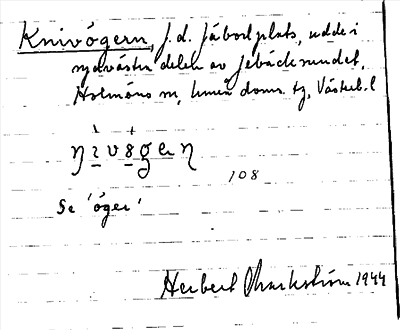 Knivögern, f.d. fäbodplats, udde i
sydvästra delen av Jebäcksundet,
Holmöns sn, Umeå doms. tg, Västerb. l
108
Se 'öger'
Herbert Markström 1944